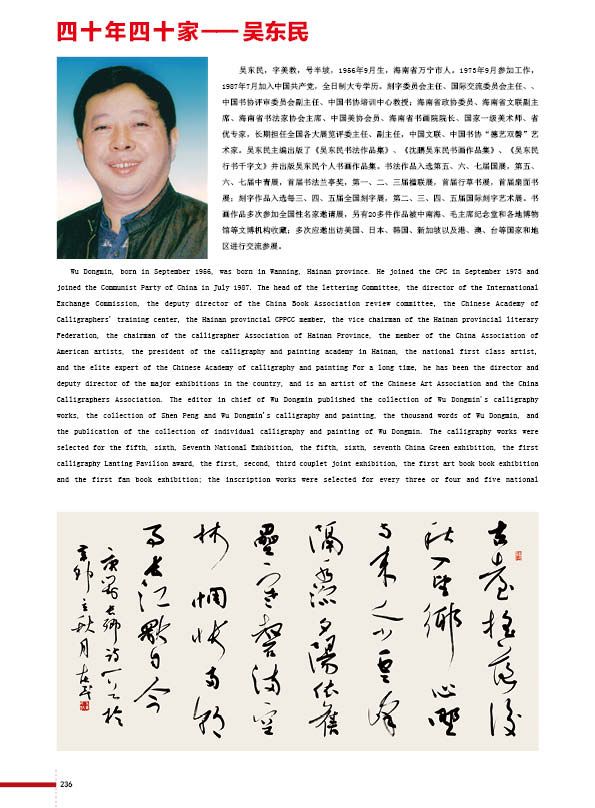 四十年四十家——吴东民
吴东民，字美教，号半坡，1956年9月生，海南省万宁市人。1973年9月参加工作，
1987年7月加入中国共产党，全日制大专学历。刻字委员会主任、国际交流委员会主任、、
中国书协评审委员会副主任、中国书协培训中心教授；海南省政协委员、海南省文联副主
席、海南省书法家协会主席、中国美协会员、海南省书画院院长、国家一级美术师、省
优专家，长期担任全国各大展览评委主任、副主任，中国文联、中国书协“德艺双馨”艺
术家。吴东民主编出版了《吴东民书法作品集》、《沈鹏吴东民书画作品集》、《吴东民
行书千字文》并出版吴东民个人书画作品集。书法作品入选第五、六、七届国展，第五、
六、七届中青展，首届书法兰亭奖，第一、二、三届楹联展，首届行草书展，首届扇面书
展；刻字作品入选每三、四、五届全国刻字展，第二、三、四、五届国际刻字艺术展。书
画作品多次参加全国性名家邀请展，另有20多件作品被中南海、毛主席纪念堂和各地博物
馆等文博机构收藏；多次应邀出访美国、日本、韩国、新加坡以及港、澳、台等国家和地
区进行交流参展。
Wu Dongmin, born in September 1956, was born in Wanning, Hainan province. He joined the CPC in September 1973 and
joined the Communist Party of China in July 1987. The head of the lettering Committee, the director of the International
Exchange Commission, the deputy director of the China Book Association review committee, the Chinese Academy of
Calligraphers' training center, the Hainan provincial CPPCC member, the vice chairman of the Hainan provincial literary
Federation, the chairman of the calligrapher Association of Hainan Province, the member of the China Association of
American artists, the president of the calligraphy and painting academy in Hainan, the national first class artist,
and the elite expert of the Chinese Academy of calligraphy and painting For a long time, he has been the director and
deputy director of the major exhibitions in the country, and is an artist of the Chinese Art Association and the China
Calligraphers Association. The editor in chief of Wu Dongmin published the collection of Wu Dongmin's calligraphy
works, the collection of Shen Peng and Wu Dongmin's calligraphy and painting, the thousand words of Wu Dongmin, and
the publication of the collection of individual calligraphy and painting of Wu Dongmin. The calligraphy works were
selected for the fifth, sixth, Seventh National Exhibition, the fifth, sixth, seventh China Green exhibition, the first
calligraphy Lanting Pavilion award, the first, second, third couplet joint exhibition, the first art book book exhibition
and the first fan book exhibition; the inscription works were selected for every three or four and five national
古臺摇落後
秋入望鄉心野
寺来人少雲峰
隔水深夕陽依舊
壘寒磬滿空
林惆悵南朝
事長江獨自今
236